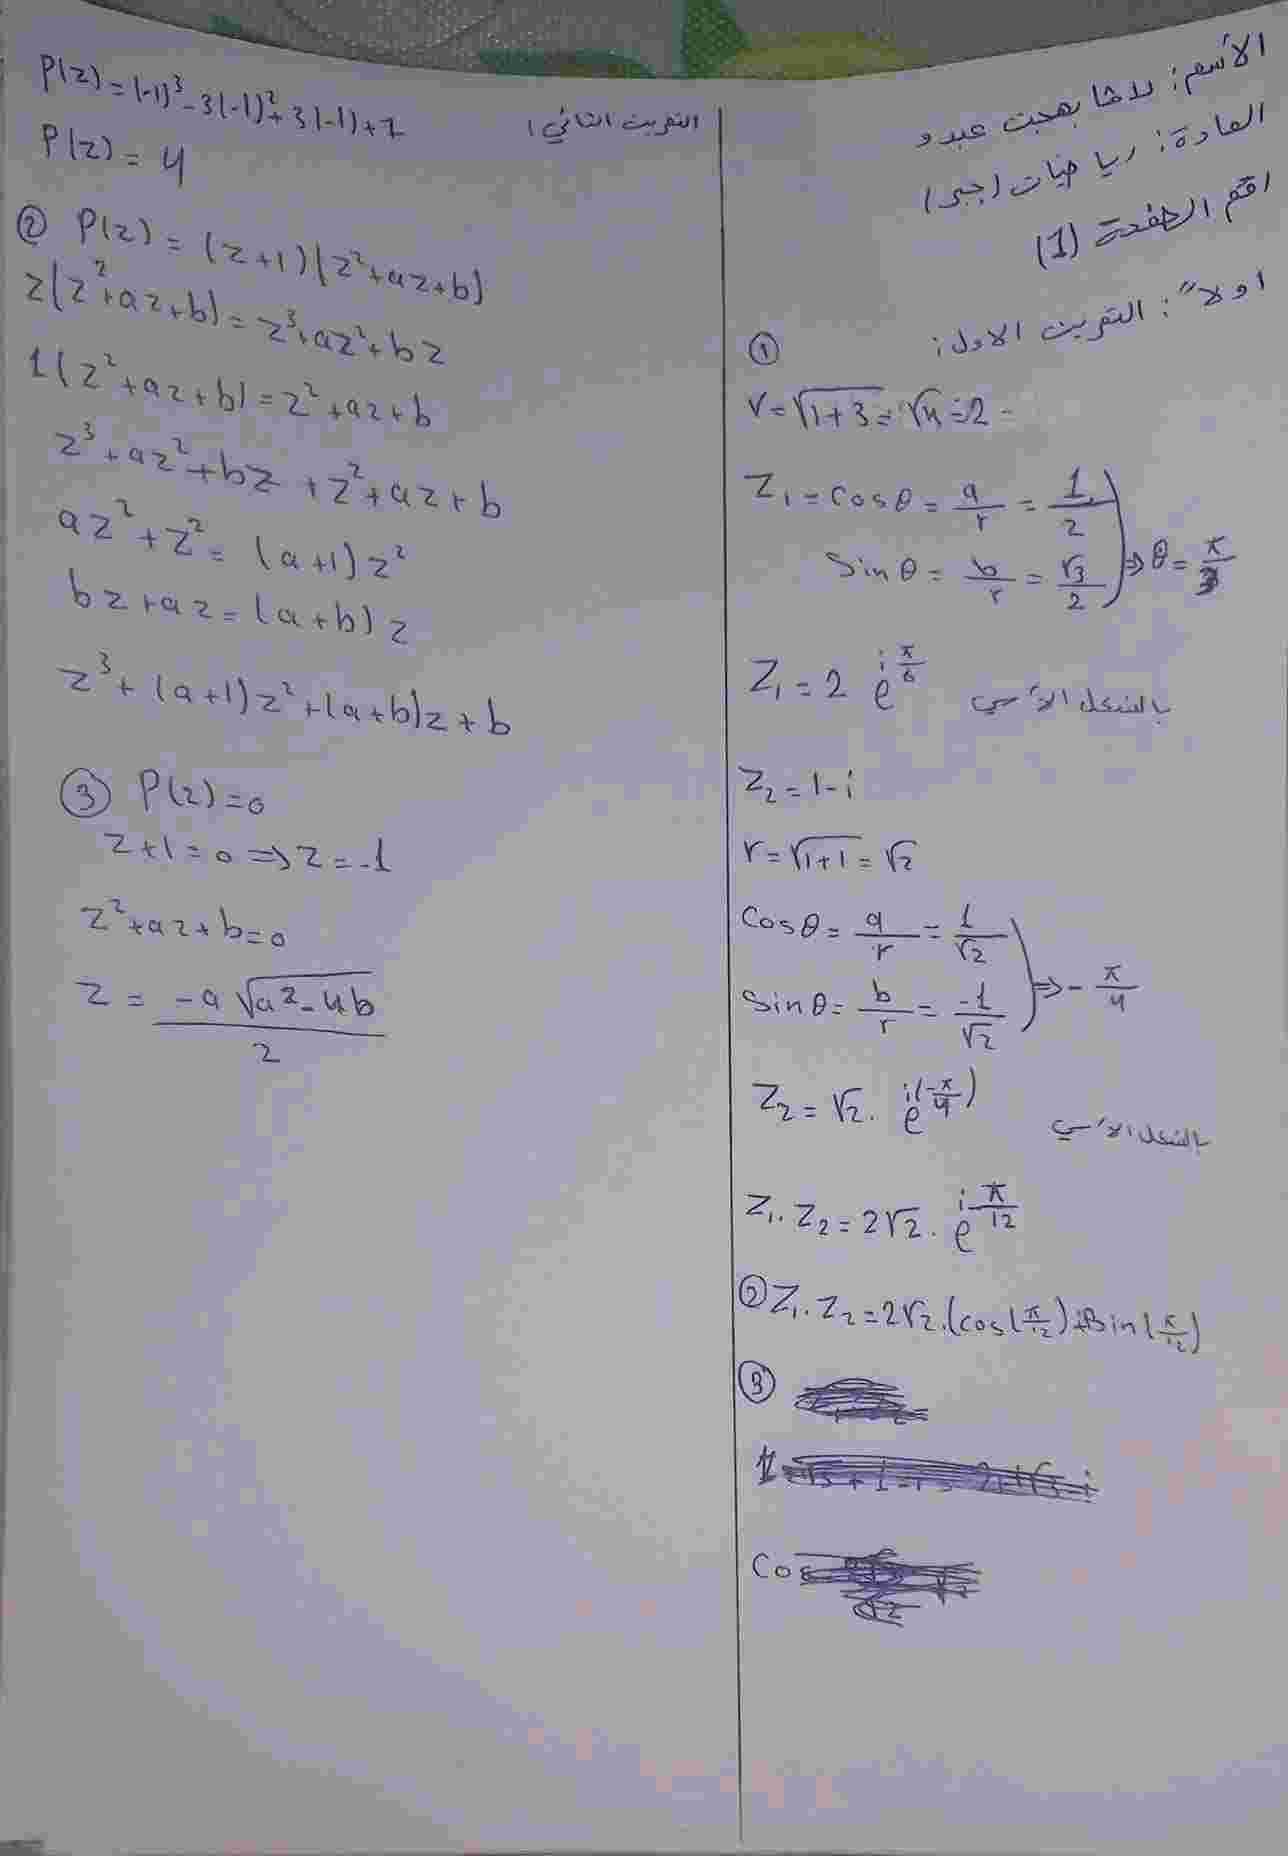 الأسم: لاشا بهجت عبدو
المادة: رياضيات (جبر)
رقم الصفحة (1)
اولاً: التمرين الاول:
①
r = √1+3 = √4 = 2
Z₁ = cosθ = a/r = 1/2
Sinθ = b/r = √3/2 ⇒ θ = π/3
Z₁ = 2 e^(i π/6) بالشكل الأسي
Z₂ = 1-i
r = √1+1 = √2
Cosθ = a/r = 1/√2
Sinθ = b/r = -1/√2 ⇒ - π/4
Z₂ = √2 . e^(i(-π/4)) بالشكل الأسي
Z₁ . Z₂ = 2√2 . e^(i π/12)
② Z₁ . Z₂ = 2√2 . (cos(π/12) + i Sin(π/12)
③
Cos
التمرين الثاني:
P(z) = (-1)³ - 3(-1)² + 3(-1) + 7
P(z) = 4
② P(z) = (z+1)(z²+az+b)
z(z²+az+b) = z³+az²+bz
1(z²+az+b) = z²+az+b
z³+az²+bz+z²+az+b
az²+z² = (a+1)z²
bz+az = (a+b)z
z³+(a+1)z²+(a+b)z+b
③ P(z) = 0
z+1 = 0 ⇒ z = -1
z²+az+b = 0
z = -a √a²-4b / 2